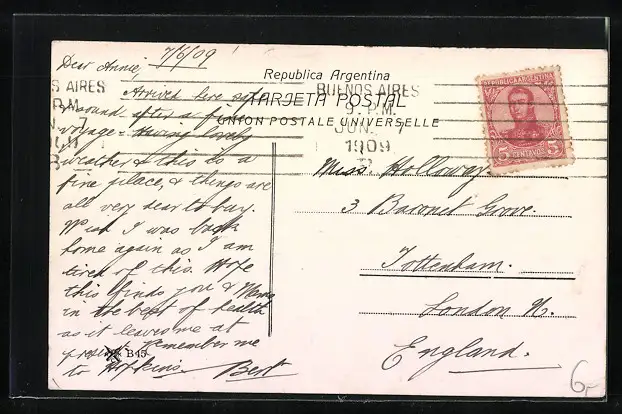 7/6/09
Dear Annie,
Arrived here safe
& sound after a fine
voyage. Having lovely
weather & this is a
fine place, & things are
all very dear to buy.
Wish I was back
home again as I am
tired of this. Hope
this finds you & Mama
in the best of health
as it leaves me at
present. Remember me
to Hopkins. Bert
B 45
Republica Argentina
TARJETA POSTAL
UNION POSTALE UNIVERSELLE
S AIRES
P.M.
BUENOS AIRES
9 P.M.
JUN 7
1909
REPUBLICA ARGENTINA
5 CENTAVOS 5
Miss. Holloway.
3 Baronet Grove.
Tottenham.
London N.
England.
6-